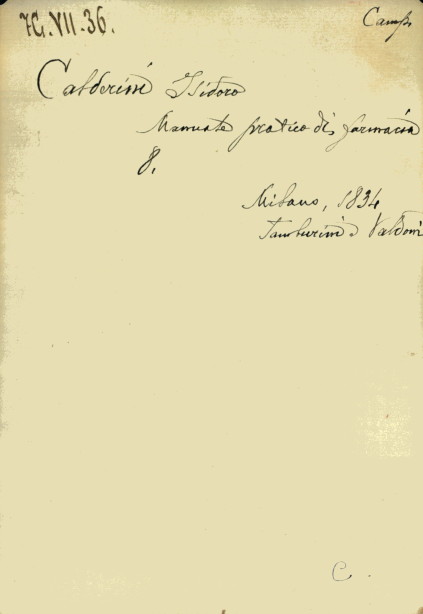 7C.VII.36.
Camp.
Calderini Isidoro
Manuale pratico di farmacia
8.
Milano, 1834
Tamburini e Valdoni
C.